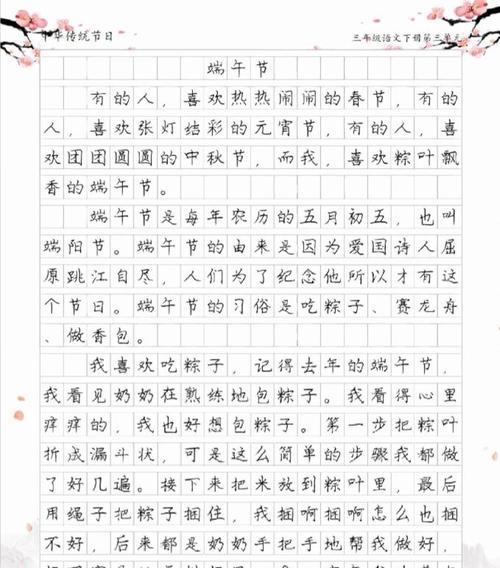 中华传统节日
三年级语文下册第三单元
端午节
有的人，喜欢热热闹闹的春节，有的
人，喜欢张灯结彩的元宵节，有的人，喜
欢团团圆圆的中秋节，而我，喜欢粽叶飘
香的端午节。
端午节是每年农历的五月初五，也叫
端阳节。端午节的由来是因为爱国诗人屈
原跳江自尽，人们为了纪念他所以才有这
个节日。端午节的习俗是吃粽子、赛龙舟
、做香包。
我喜欢吃粽子，记得去年的端午节，
我看见奶奶在熟练地包粽子。我看得心里
痒痒的，我也好想包粽子。第一步把粽叶
折成漏斗状，可是这么简单的步骤我都做
了好几遍。接下来把米放到粽叶里，最后
用绳子把粽子捆住，我捆啊捆啊怎么也捆
不好，后来都是奶奶手把手地帮我做好，